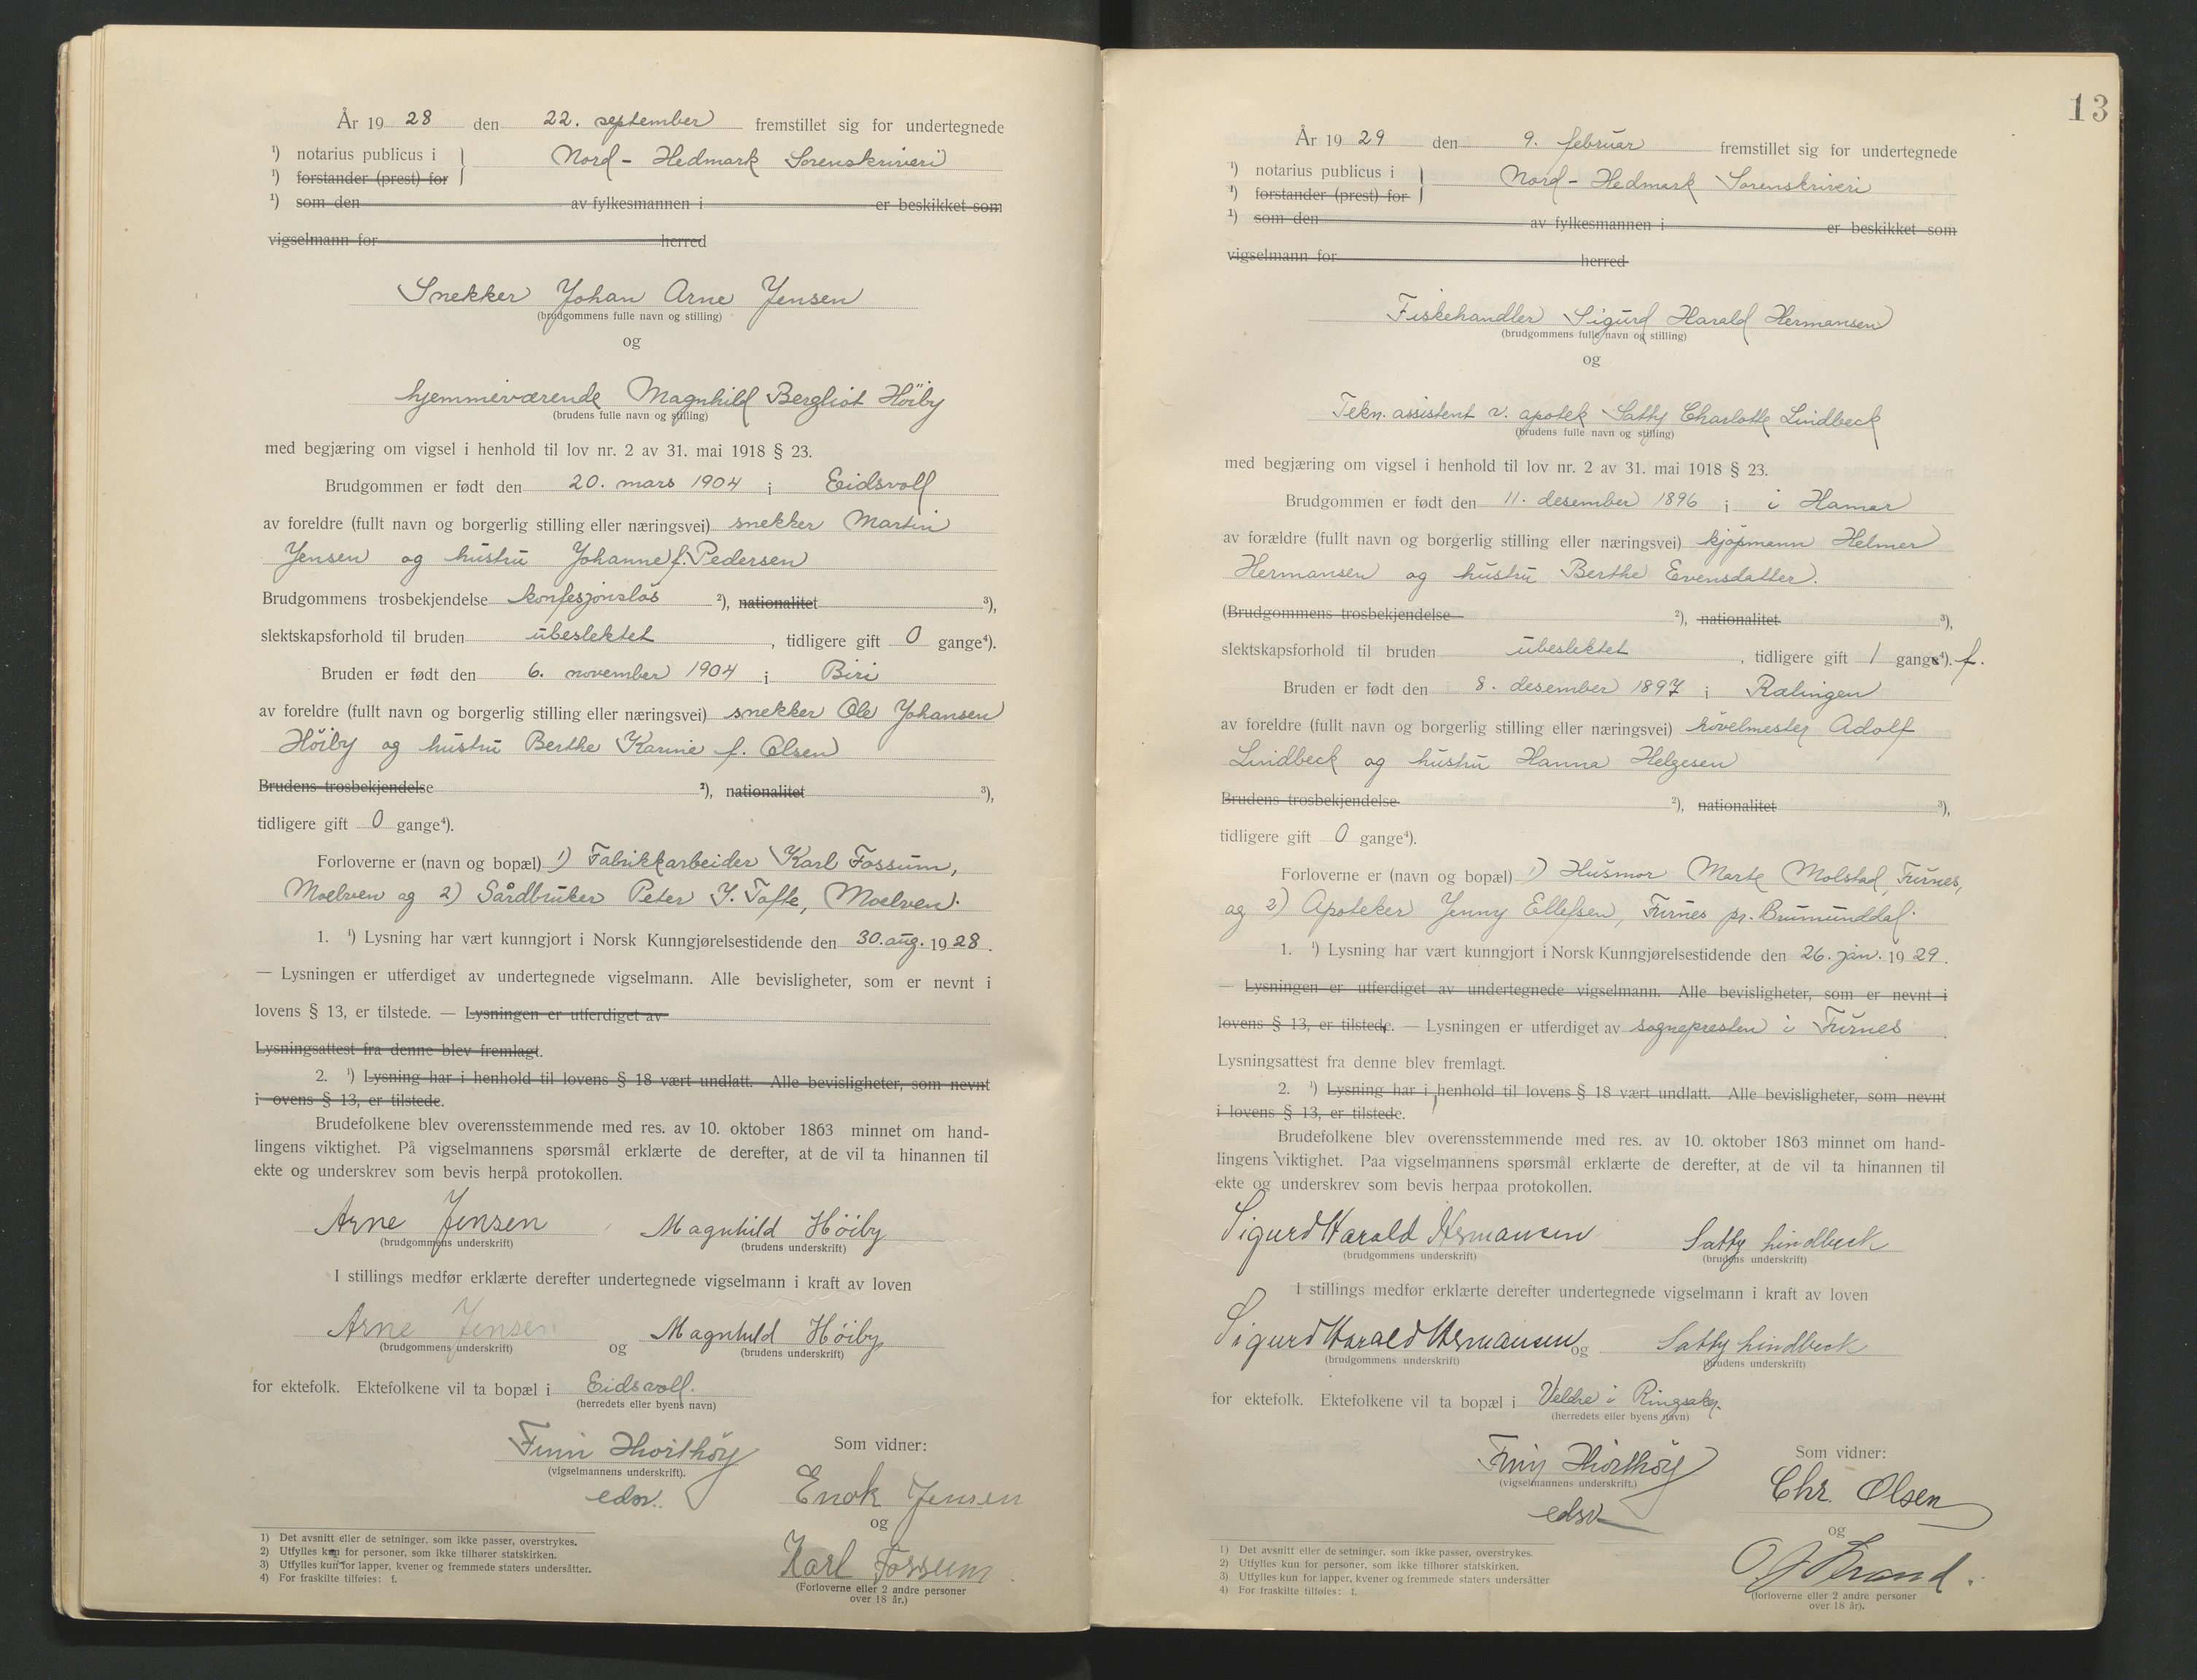 År 19 28 den 22. september fremstillet sig for undertegnede
¹) notarius publicus i } Nord-Hedmark Sorenskriveri
¹) forstander (prest) for
¹) som den av fylkesmannen i er beskikket som
vigselmann for herred
Snekker Johan Arne Jensen
(brudgommens fulle navn og stilling)
og
hjemmeværende Magnhild Bergliot Höiby
(brudens fulle navn og stilling)
med begjæring om vigsel i henhold til lov nr. 2 av 31. mai 1918 § 23.
Brudgommen er født den 20. mars 1904 i Eidsvoll
av foreldre (fullt navn og borgerlig stilling eller næringsvei) snekker Martin
Jensen og hustru Johanne f. Pedersen
Brudgommens trosbekjendelse konfesjonsløs ²), nationalitet ³),
slektskapsforhold til bruden ubeslektet, tidligere gift 0 gange⁴).
Bruden er født den 6. november 1904 i Biri
av foreldre (fullt navn og borgerlig stilling eller næringsvei) snekker Ole Johansen
Höiby og hustru Berthe Karine f. Olsen
Brudens trosbekjendelse ²), nationalitet ³),
tidligere gift 0 gange⁴).
Forloverne er (navn og bopæl) 1) Fabrikkarbeider Karl Fossum,
Moelven og 2) Gårdbruker Peter J. Tofte, Moelven.
1. ¹) Lysning har vært kunngjort i Norsk Kunngjørelsestidende den 30. aug. 19 28.
— Lysningen er utferdiget av undertegnede vigselmann. Alle bevisligheter, som er nevnt i
lovens § 13, er tilstede. — Lysningen er utferdiget av
Lysningsattest fra denne blev fremlagt.
2. ¹) Lysning har i henhold til lovens § 18 vært undlatt. Alle bevisligheter, som nevnt
i ovens § 13, er tilstede.
Brudefolkene blev overensstemmende med res. av 10. oktober 1863 minnet om hand-
lingens viktighet. På vigselmannens spørsmål erklærte de derefter, at de vil ta hinannen til
ekte og underskrev som bevis herpå protokollen.
Arne Jensen Magnhild Höiby
(brudgommens underskrift) (brudens underskrift)
I stillings medfør erklærte derefter undertegnede vigselmann i kraft av loven
Arne Jensen og Magnhild Höiby
(brudgommens underskrift) (brudens underskrift)
for ektefolk. Ektefolkene vil ta bopæl i Eidsvoll.
(herredets eller byens navn)
Finn Hiorthöy Som vidner:
(vigselmannens underskrift).
edsv. Enok Jensen
og
Karl Fossum
(Forloverne eller 2 andre personer
over 18 år.)
1) Det avsnitt eller de setninger, som ikke passer, overstrykes.
2) Utfylles kun for personer, som ikke tilhører statskirken.
3) Utfylles kun for lapper, kvener og fremmede staters undersåtter.
4) For fraskilte tilføies: f.
13
År 19 29 den 9. februar fremstillet sig for undertegnede
¹) notarius publicus i } Nord-Hedmark Sorenskriveri
¹) forstander (prest) for
¹) som den av fylkesmannen i er beskikket som
vigselmann for herred
Fiskehandler Sigurd Harald Hermansen
(brudgommens fulle navn og stilling)
og
Tekn. assistent v. apotek Satty Charlotte Lindbeck
(brudens fulle navn og stilling)
med begjæring om vigsel i henhold til lov nr. 2 av 31. mai 1918 § 23.
Brudgommen er født den 11. desember 1896 i i Hamar
av forældre (fullt navn og borgerlig stilling eller næringsvei) kjøpmann Helmer
Hermansen og hustru Berthe Evensdatter.
(Brudgommens trosbekjendelse ²), nationalitet ³),
slektskapsforhold til bruden ubeslektet, tidligere gift 1 gange⁴). f.
Bruden er født den 8. desember 1897 i Rælingen
av foreldre (fullt navn og borgerlig stilling eller næringsvei) hövelmester Adolf
Lindbeck og hustru Hanna Helgesen
Brudens trosbekjendelse ²), nationalitet ³),
tidligere gift 0 gange⁴).
Forloverne er (navn og bopæl) 1) Husmor Marte Molstad, Furnes,
og 2) Apoteker Jenny Ellefsen, Furnes pr. Brumunddal.
1. ¹) Lysning har vært kunngjort i Norsk Kunngjørelsestidende den 26. jan. 19 29.
— Lysningen er utferdiget av undertegnede vigselmann. Alle bevisligheter, som er nevnt i
lovens § 13, er tilstede. — Lysningen er utferdiget av sognepresten i Furnes
Lysningsattest fra denne blev fremlagt.
2. ¹) Lysning har i henhold til lovens § 18 vært undlatt. Alle bevisligheter, som nevnt
i lovens § 13, er tilstede.
Brudefolkene blev overensstemmende med res. av 10. oktober 1863 minnet om hand-
lingens viktighet. Paa vigselmannens spørsmål erklærte de derefter, at de vil ta hinannen til
ekte og underskrev som bevis herpaa protokollen.
Sigurd Harald Hermansen Satty Lindbeck
(brudgommens underskrift) (brudens underskrift)
I stillings medfør erklærte derefter undertegnede vigselmann i kraft av loven
Sigurd Harald Hermansen og Satty Lindbeck
(brudgommens underskrift) (brudens underskrift)
for ektefolk. Ektefolkene vil ta bopæl i Veldre i Ringsaker.
(herredets eller byens navn)
Finn Hiorthöy Som vidner:
(vigselmannens underskrift.)
edsv. Chr. Olsen
og
Strand.
(forloverne eller 2 andre personer
over 18 år).
1) Det avsnitt eller de setninger, som ikke passer, overstrykes.
2) Utfylles kun for personer, som ikke tilhører statskirken.
3) Utfylles kun for lapper, kvener og fremmede staters undersåtter
4) For fraskilte tilføies: f.